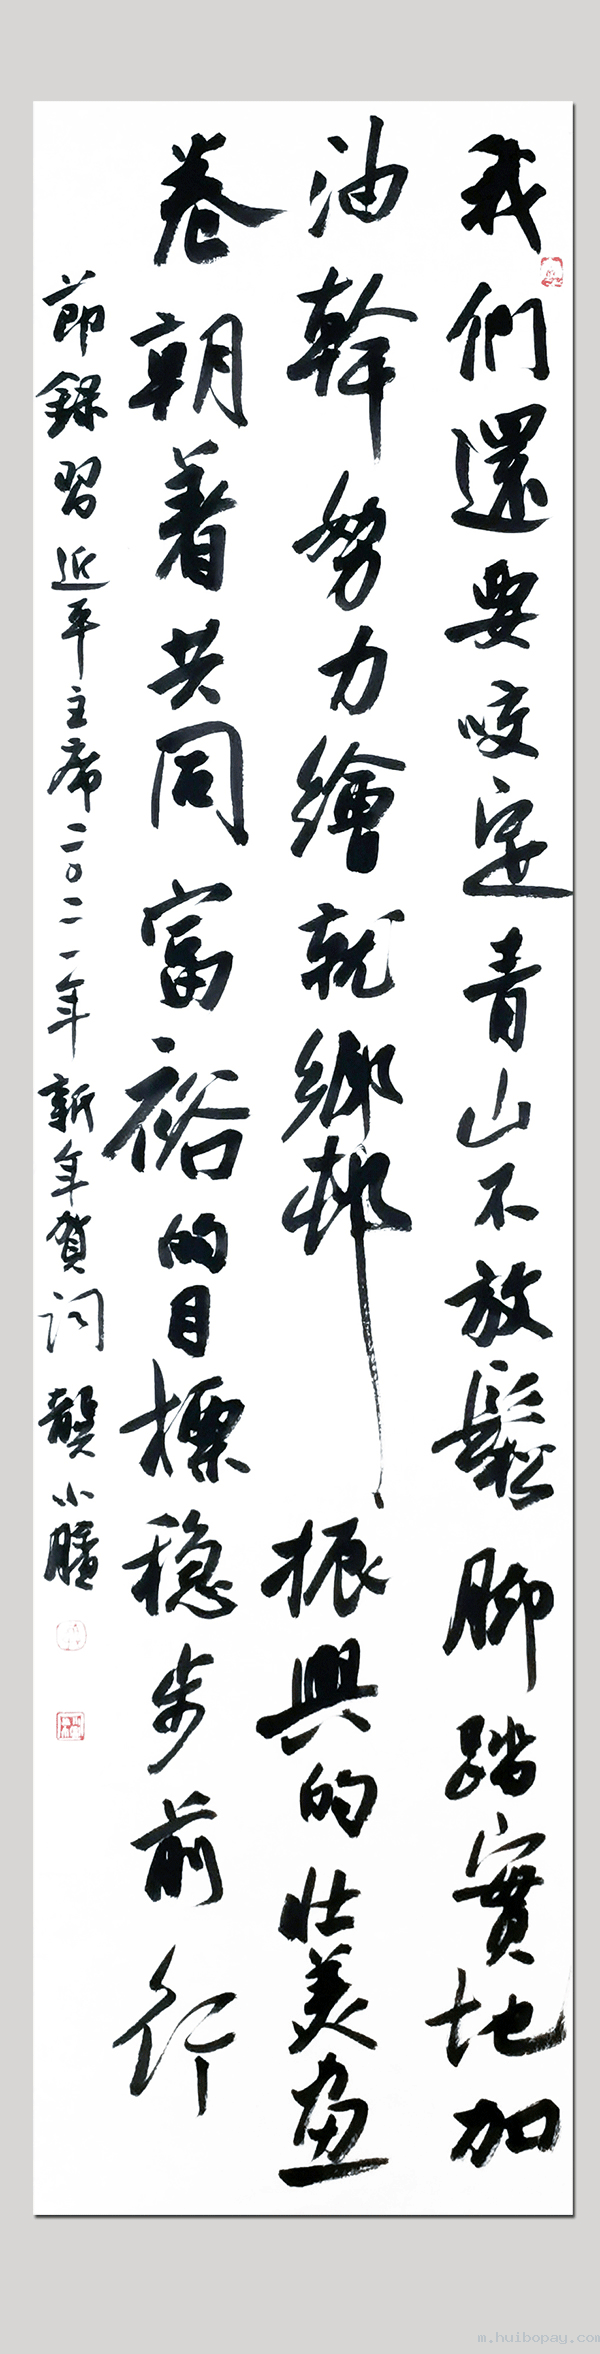 我們還要咬定青山不放鬆脚踏實地加
油幹努力繪就鄉邨振興的壯美畫
卷朝着共同富裕的目標稳步前行
節錄習近平主席二〇二一年新年贺词龔小膻
m.huibopay.com